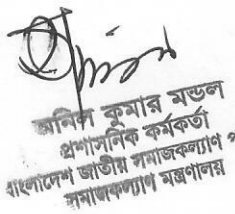 অনিল কুমার মন্ডল
প্রশাসনিক কর্মকর্তা
বাংলাদেশ জাতীয় সমাজকল্যাণ প
সমাজকল্যাণ মন্ত্রণালয়